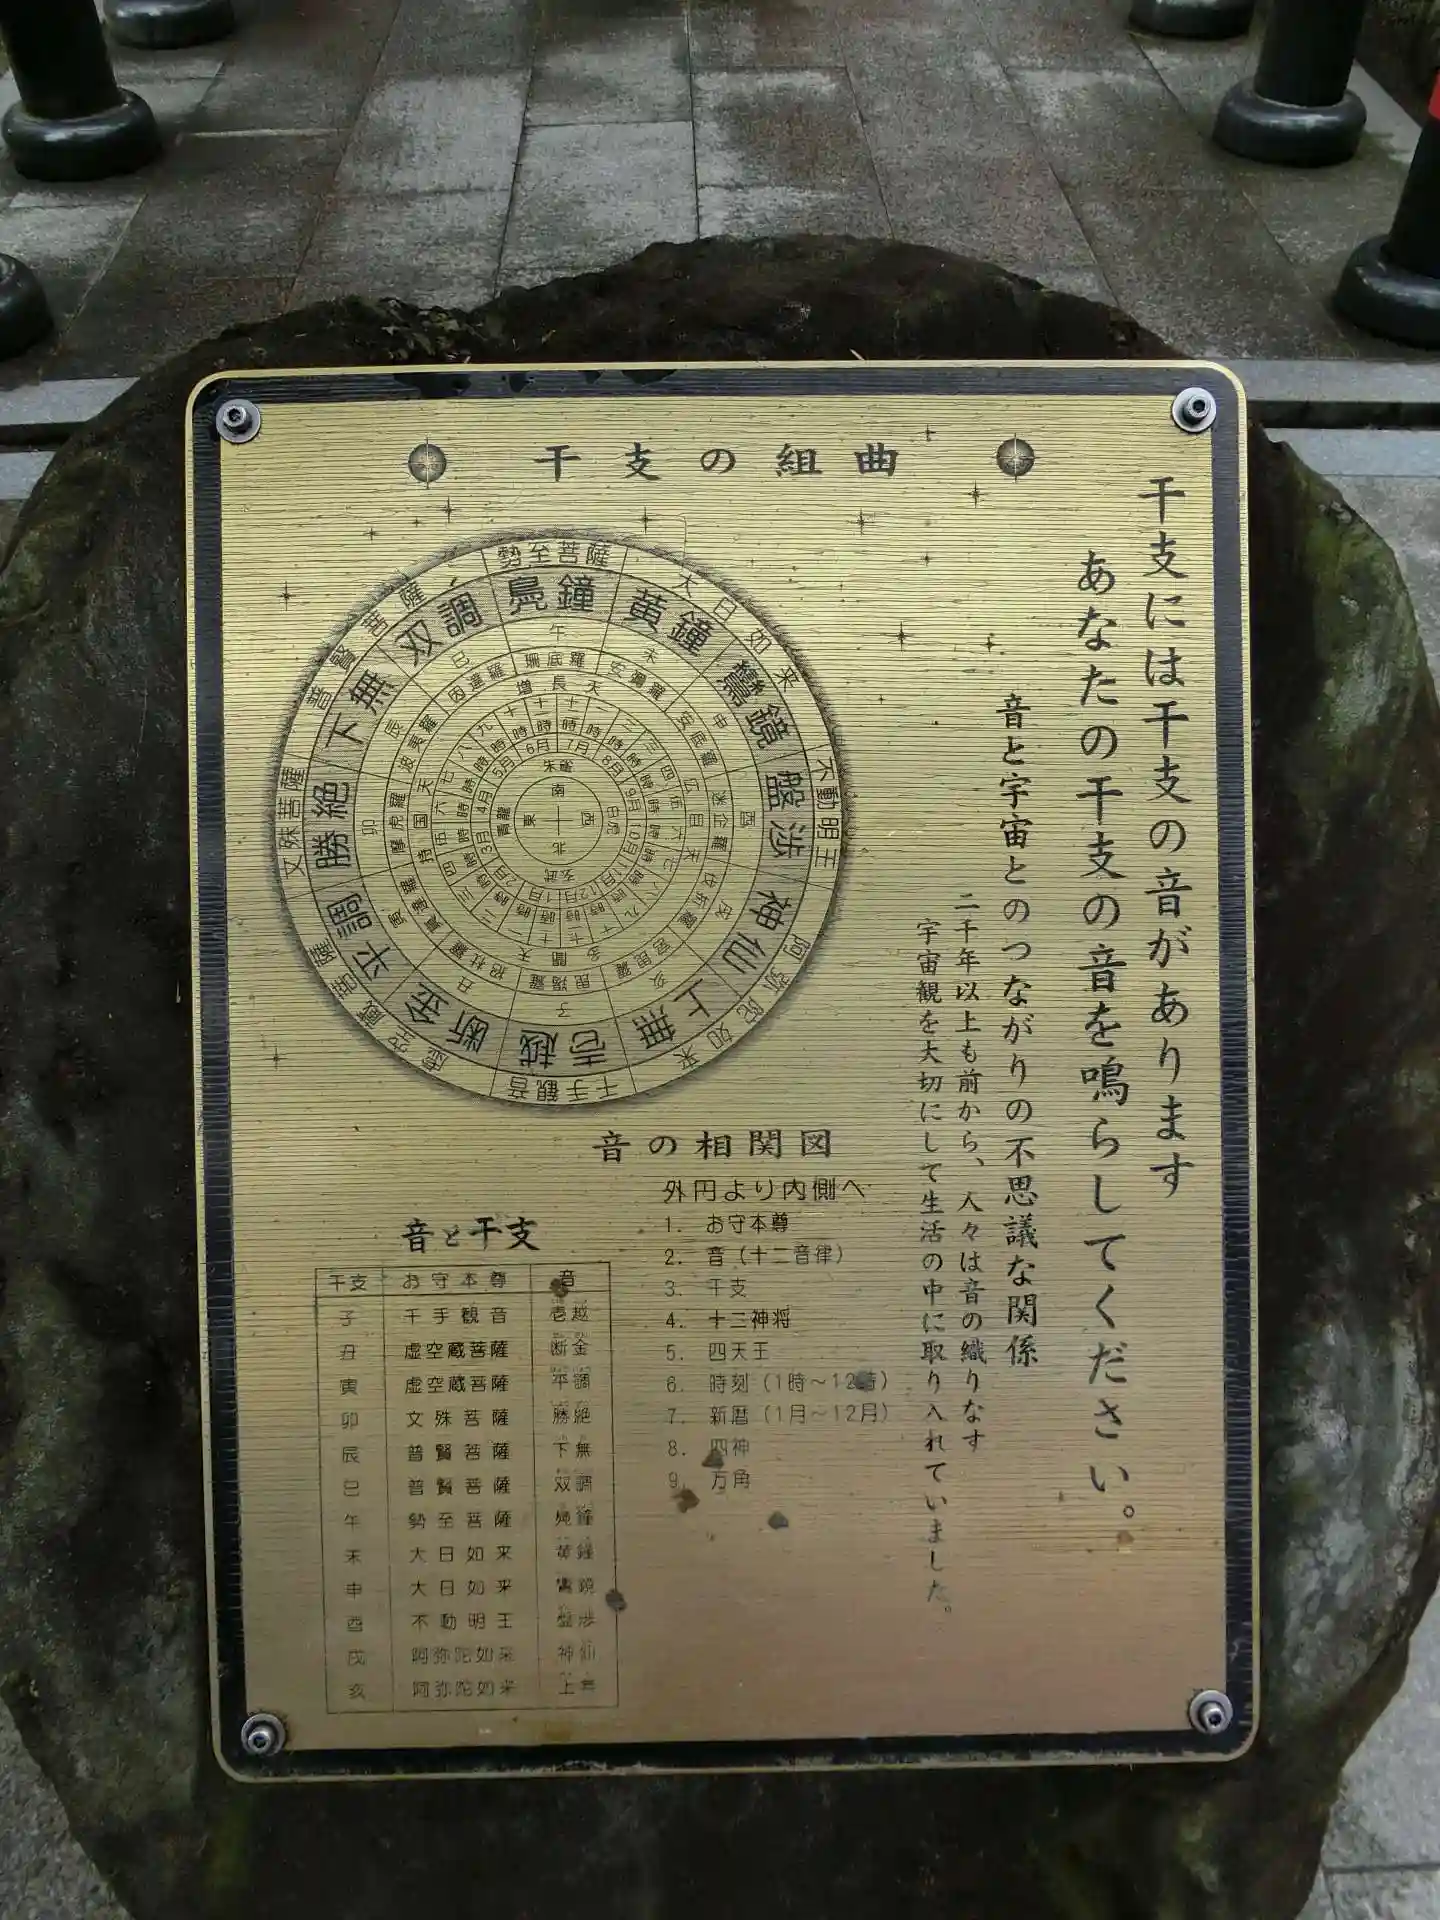 干支の組曲
干支には干支の音があります
あなたの干支の音を鳴らしてください。
音と宇宙とのつながりの不思議な関係
二千年以上も前から、人々は音の織りなす
宇宙観を大切にして生活の中に取り入れていました。
勢至菩薩
大日如来
不動明王
阿弥陀如来
千手観音
虚空蔵菩薩
文殊菩薩
普賢菩薩
鳧鐘
黄鐘
鸞鏡
盤渉
神仙
上無
壱越
断金
平調
勝絶
下無
双調
午
未
申
酉
戌
亥
子
丑
寅
卯
辰
巳
珊底羅
増長天
6月 7月 8月 9月 10月 11月 12月 1月 2月 3月 4月 5月
朱雀
白虎
玄武
青龍
南
西
北
東
音の相関図
外円より内側へ
1. お守本尊
2. 音(十二音律)
3. 干支
4. 十二神将
5. 四天王
6. 時刻(1時〜12時)
7. 新暦(1月〜12月)
8. 四神
9. 方角
音と干支
干支 お守本尊 音
子 千手観音 壱越
丑 虚空蔵菩薩 断金
寅 虚空蔵菩薩 平調
卯 文殊菩薩 勝絶
辰 普賢菩薩 下無
巳 普賢菩薩 双調
午 勢至菩薩 鳧鐘
未 大日如来 黄鐘
申 大日如来 鸞鏡
酉 不動明王 盤渉
戌 阿弥陀如来 神仙
亥 阿弥陀如来 上無